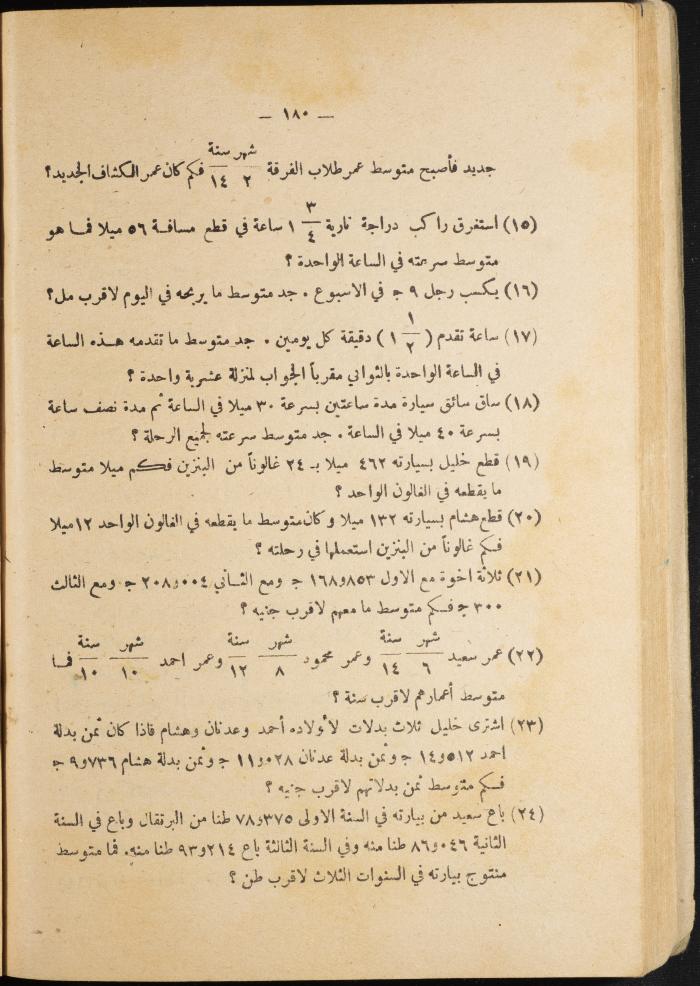 — ١٨٠ —
جديد فأصبح متوسط عمر طلاب الفرقة شهر ٢ سنة ١٤ فكم كان عمر الكشاف الجديد؟
(١٥) استغرق راكب دراجة نارية ١ ٣/٤ ساعة في قطع مسافة ٥٦ ميلا فما هو
متوسط سرعته في الساعة الواحدة ؟
(١٦) يكسب رجل ٩ ج في الاسبوع . جد متوسط ما يربحه في اليوم لاقرب مل؟
(١٧) ساعة تقدم ( ١ ١/٢ ) دقيقة كل يومين . جد متوسط ما تقدمه هذه الساعة
في الساعة الواحدة بالثواني مقرباً الجواب لمنزلة عشرية واحدة ؟
(١٨) ساق سائق سيارة مدة ساعتين بسرعة ٣٠ ميلا في الساعة ثم مدة نصف ساعة
بسرعة ٤٠ ميلا في الساعة . جد متوسط سرعته لجميع الرحلة ؟
(١٩) قطع خليل بسيارته ٤٦٢ ميلا بـ ٢٤ غالوناً من البنزين فكم ميلا متوسط
ما يقطعه في الغالون الواحد ؟
(٢٠) قطع هشام بسيارته ١٣٢ ميلا وكان متوسط ما يقطعه في الغالون الواحد ١٢ ميلا
فكم غالوناً من البنزين استعملها في رحلته ؟
(٢١) ثلاثة اخوة مع الاول ٨٥٣و١٦٨ ج ومع الثاني ٠٠٤و٢٠٨ ج ومع الثالث
٣٠٠ ج فكم متوسط ما معهم لاقرب جنيه ؟
(٢٢) عمر سعيد شهر ٦ سنة ١٤ وعمر محمود شهر ٨ سنة ١٢ وعمر احمد شهر ١٠ سنة ١٠ فما
متوسط أعمارهم لاقرب سنة ؟
(٢٣) اشترى خليل ثلاث بدلات لأولاده أحمد وعدنان وهشام فاذا كان ثمن بدلة
احمد ٥١٢و١٤ ج وثمن بدلة عدنان ٠٢٨و١١ ج وثمن بدلة هشام ٧٣٦و٩ ج
فكم متوسط ثمن بدلاتهم لاقرب جنيه ؟
(٢٤) باع سعيد من بيارته في السنة الاولى ٣٧٥و٧٨ طنا من البرتقال وباع في السنة
الثانية ٠٤٦و٨٦ طنا منه وفي السنة الثالثة باع ٢١٤و٩٣ طنا منه. فما متوسط
منتوج بيارته في السنوات الثلاث لاقرب طن ؟